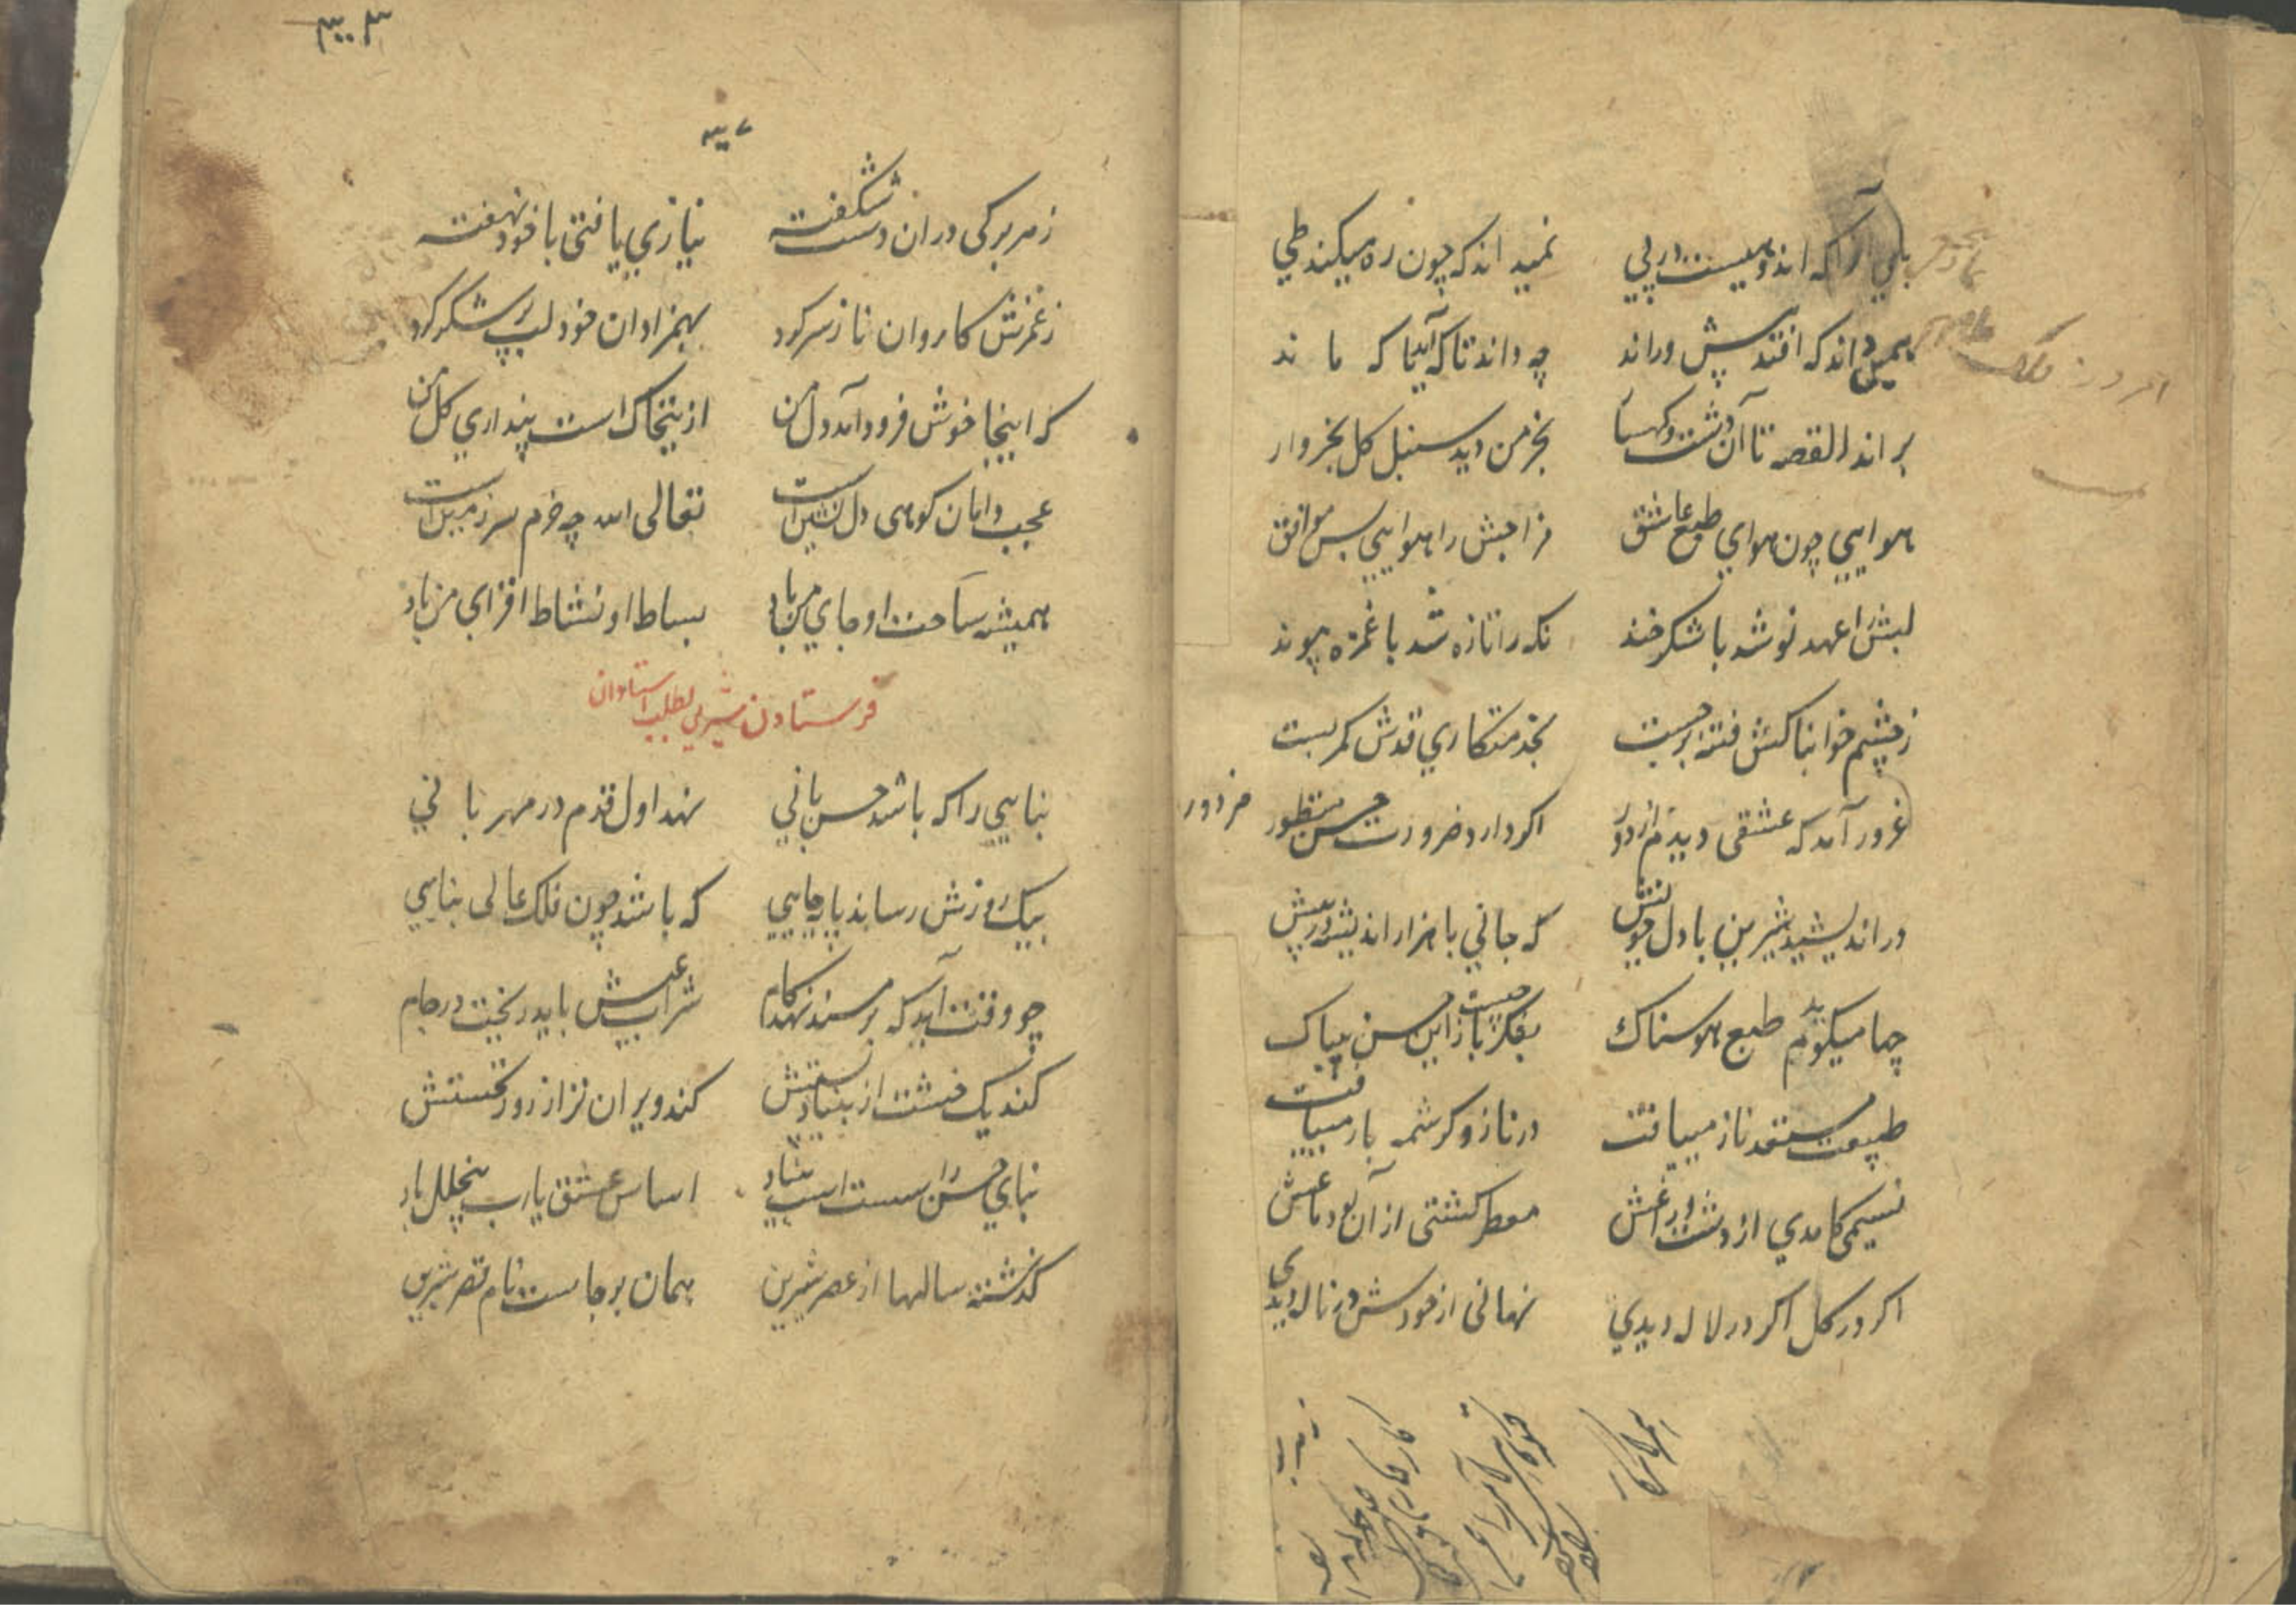 بلي آنرا که اندوهیست در پی نمیداند که چون ره میکند طی
همین داند که افتد پیش و راند چه داند تا که آید یا که ماند
براند القصه تا آن دشت و کهسار بخرمن دید سنبل کل بخروار
هوایی چون هوای طبع عاشق مزاجش را هوایی بس موافق
لبش را عهد نو شد با شکرخند نکه را تازه شد با غمزه پیوند
ز چشم خوابناکش فتنه برجست بخدمتکاری قدش کمر بست
غرور آمد که عشقی دیدم از دور اکر دارد ضرورت حسن منظور
مزدور
در اندیشید شیرین با دل خویش که جانی با هزار اندیشه در پیش
چها میکویدم طبع هوسناک بفکر چیست باز این حسن بیباک
طبیعت مستعد ناز مییافت در ناز و کرشمه باز مییافت
نسیمی کامدی از دشت و راغش معطر کشتی از آن بو دماغش
اکر در کل اکر در لاله دیدی نهانی از خودش در ناله دیدی
ز هر برکی در ان دشت شکفته نیازی یافتی با خود نهفته
ز غمزش کاروان ناز سر کرد بهمزادان خود لب پر شکر کرد
که اینجا خوش فرود آمد دل من ازینخاک است پنداری کل من
عجب دامان کوهی دل نشین است تعالی الله چه خرم سرزمین است
همیشه ساحت او جای من باد بساط او نشاط افزای من باد
فرستادن شیرین بطلب استادان
بنایی را که باشد حسن بانی نهد اول قدم در مهربانی
بیک روزش رساند پا بجایی که باشد چون فلک عالی بنایی
چو وقت آید که بر مسند نهد کام شراب عیش باید ریخت در جام
کند یک خشت از بنیاد سستش کند ویران تر از روز نخستش
بنای حسن را سست است بنیاد اساس عشق یارب بیخلل باد
کذشته سالها از عصر شیرین همان برجاست نام قصر شیرین